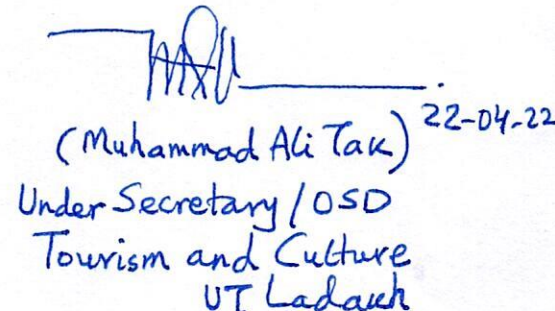 22-04-22
(Muhammad Ali Tak)
Under Secretary / OSD
Tourism and Culture
UT Ladakh